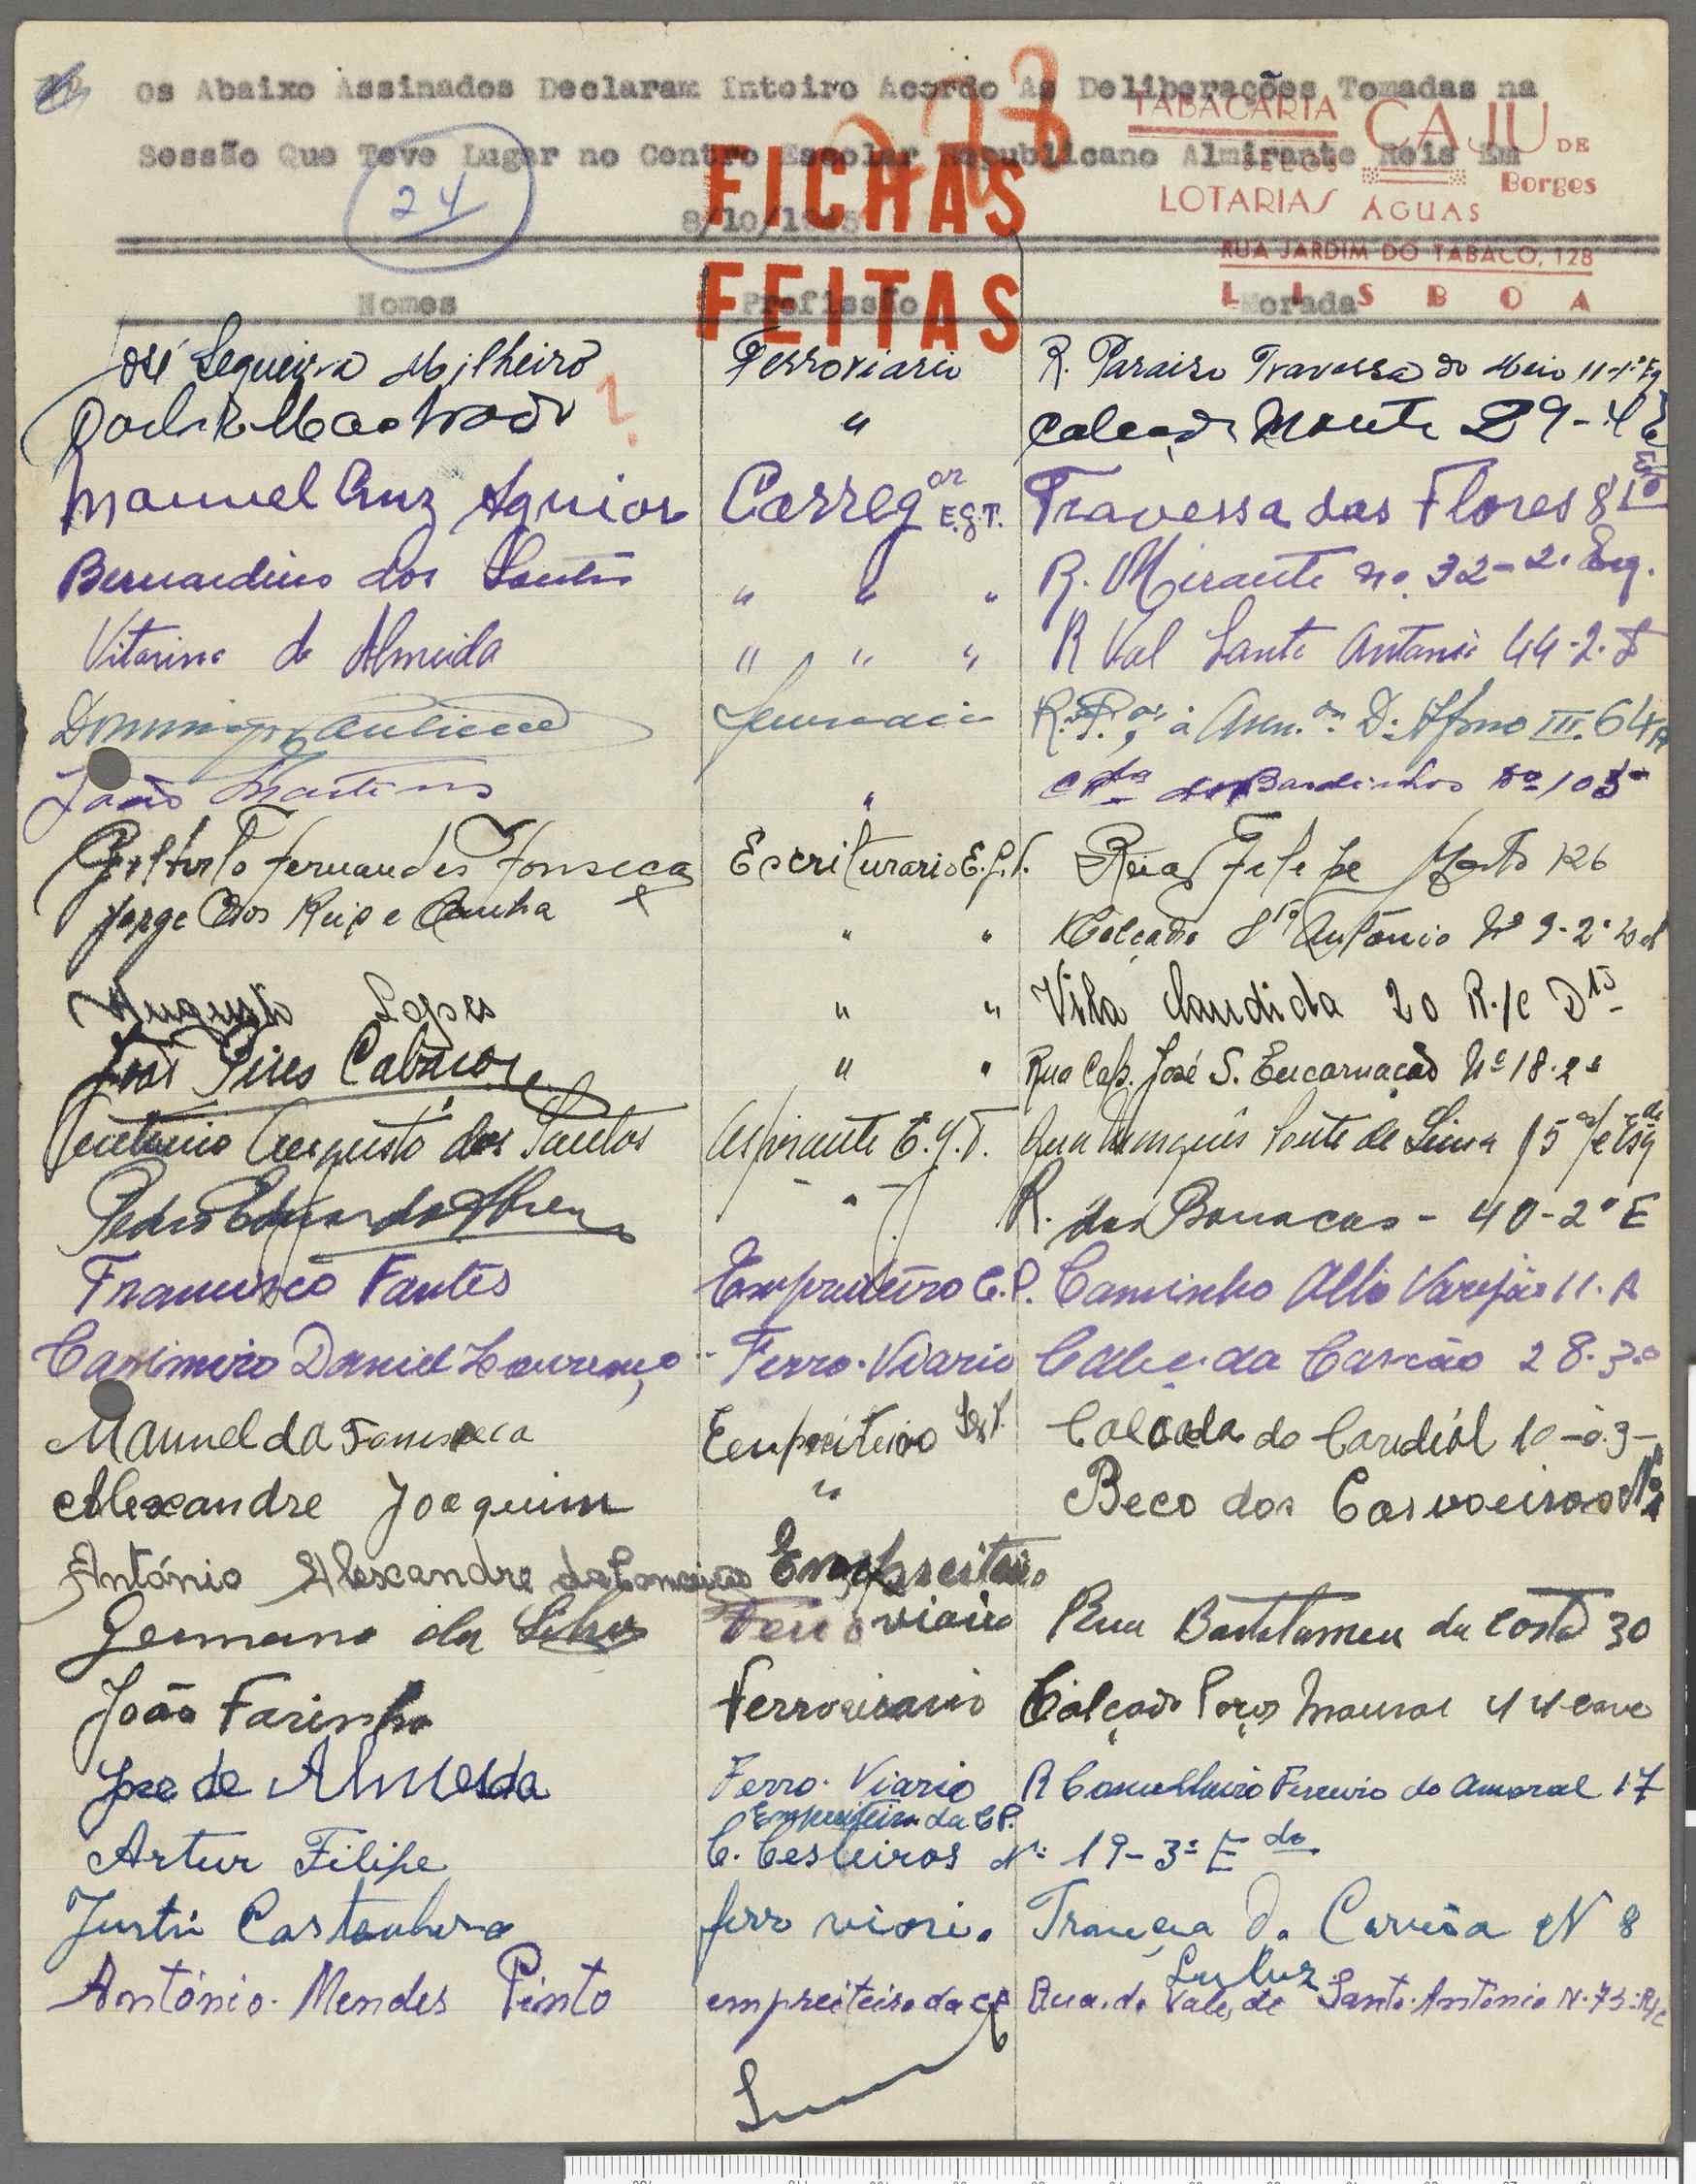 Os Abaixo Assinados Declaram Inteiro Acordo Às Deliberações Tomadas na
Sessão Que Teve Lugar no Centro Escolar Republicano Almirante Reis Em
8/10/1945
24
FICHAS
FEITAS
TABACARIA CAJU DE
SELOS Borges
LOTARIAS ÁGUAS
RUA JARDIM DO TABACO, 128
LISBOA
Nomes Profissão Morada
José Sequeira Milheiro Ferroviario R. Paraiso Travessa do Meio 11-1º
Machado " Calçada Monte 29-4
Manuel Cruz Aguiar Carreg or E.G.T. Travessa das Flores 8
Bernardino dos Santos " " " R. Mirante nº 32-2º Esq.
Vitorino de Almeida " " " R Val Santo Antonio 44-2-D
Domingos D. Afonso III. 64
João Martins " C da dos Barbadinhos nº 103
Gilberto Fernandes Fonseca Escriturario E.G.T. Rua Felipe 126
Jorge dos Reis e Cunha " " Calçada Stº António Nº 9-2º
Augusto Lopes " " Vila Candida 20 R./c Dtº
João Pires Cabaço " " Rua Cap. José S. Encarnação Nº 18-2º
Antonio Augusto dos Santos Aspirante E.G.T. Rua Marquês Ponte de Lima 15 Esq
Pedro Eduardo Abreu - " - R. das Bonecas - 40-2º E
Francisco Fantes Empreiteiro C.P. Caminho Alto Varejão 11-A
Casimiro Daniel Lourenço - Ferro-Viario Calç. da Cascão 28-3º
Manuel da Fonseca Empreiteiro Calçada do Cardiál 10-
Alexandre Joaquim " Beco dos Carvoeiros
António Alexandre da Conceição Empreiteiro
Germano da Silva Ferroviario Rua Bartolomeu da Costa 30
João Farinha Ferroviario Calçada Poços Mouros 44 cave
Jose de Almeida Ferro-Viario R Conselheiro Ferreira do Amaral 17
Empreiteiro da CP.
Artur Filipe C. Cesteiros Nº 19-3º E do
Justi Castanheira ferro viario Da N 8
António Mendes Pinto empreiteiro da CP Rua do Vale de Santo António N. 73-R/c